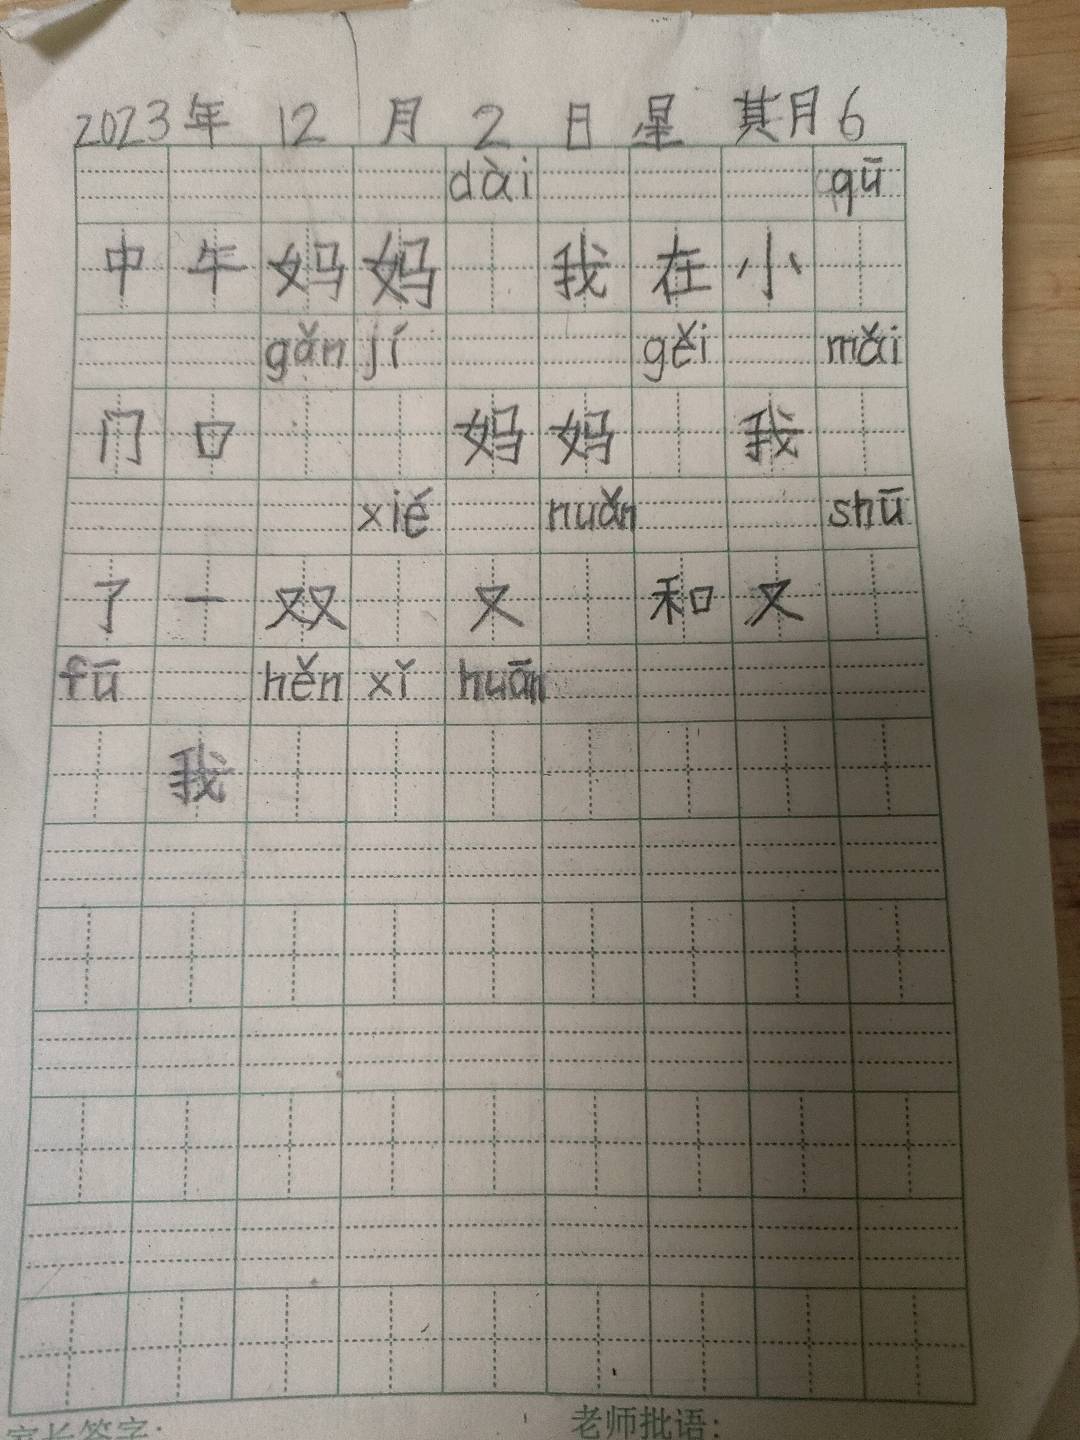 2023年 12 月 2 日 星 期 6
dài qū
中午妈妈 我在小
gǎn jí gěi mǎi
门口 妈妈 我
xié nuǎn shū
了一双 又 和又
fū hěn xǐ huān
我
家长签字: 老师批语: